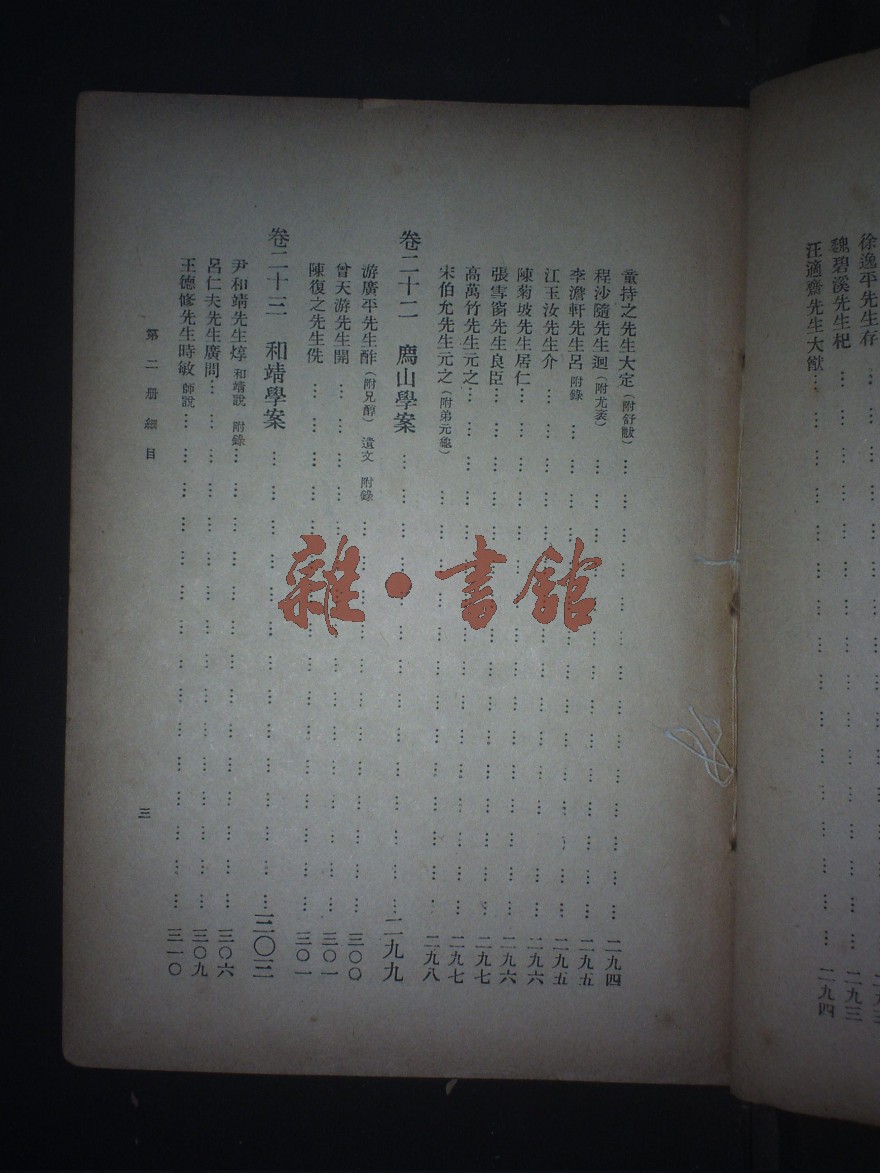 徐逸平先生存
魏碧溪先生杞 … … 二九三
汪適齋先生大猷 … … 二九四
童持之先生大定（附舒黻） … … 二九四
程沙隨先生迥（附尤袤） … … 二九五
李澹軒先生呂 附錄 … … 二九五
江玉汝先生介 … … 二九五
陳菊坡先生居仁 … … 二九六
張雪窗先生良臣 … … 二九六
高萬竹先生元之 … … 二九七
宋伯允先生元之（附弟元龜） … … 二九八
卷二十二 廌山學案 … … 二九九
游廣平先生酢（附兄醇） 遺文 附錄 … … 三〇〇
曾天游先生開 … … 三〇一
陳復之先生侁 … … 三〇一
卷二十三 和靖學案 … … 三〇三
尹和靖先生焞 和靖說 附錄 … … 三〇六
呂仁夫先生廣問 … … 三〇九
王德修先生時敏 師說 … … 三一〇
第二册細目
三
雜·書館